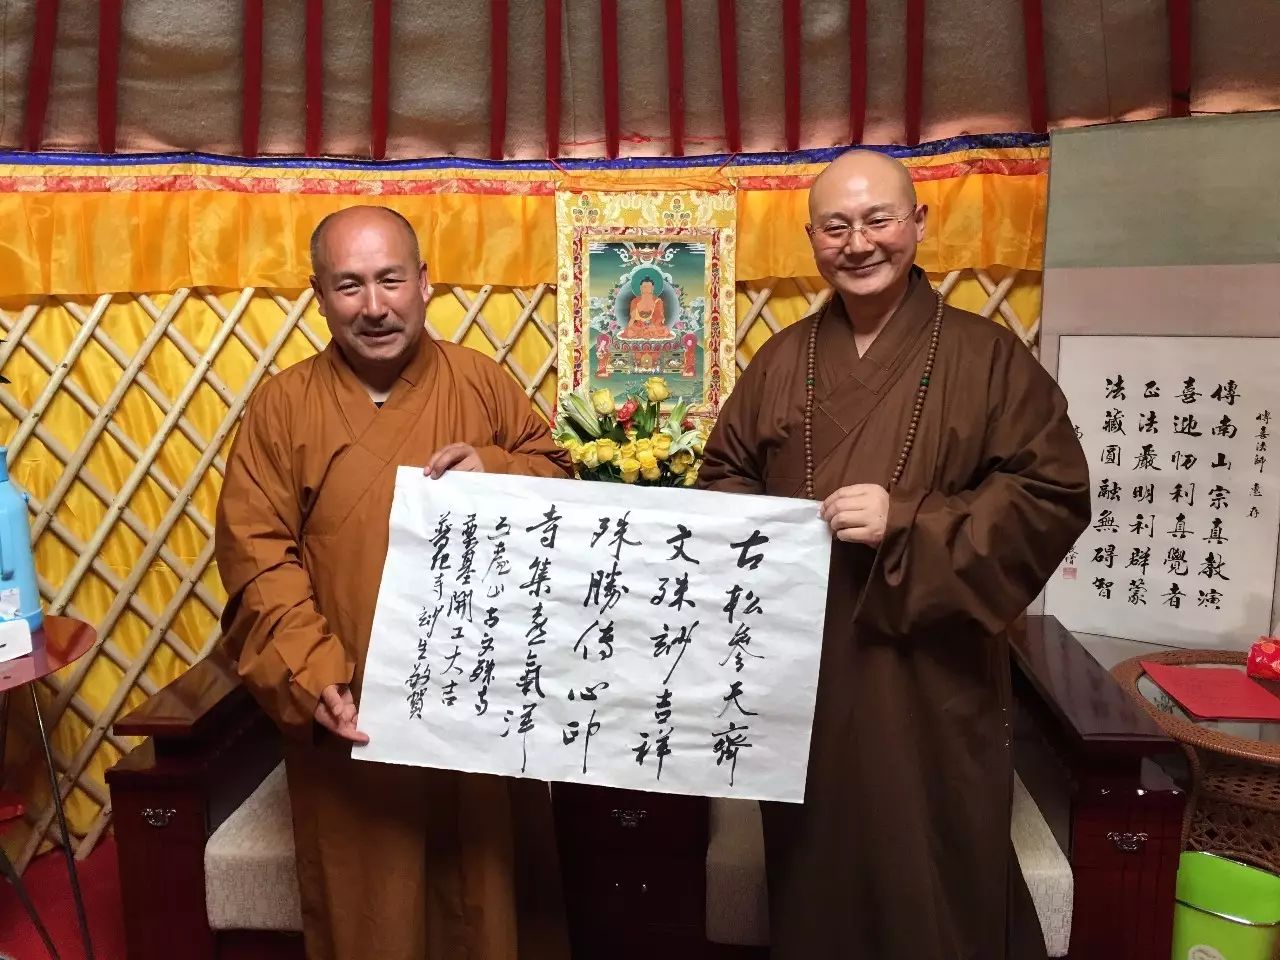 古松參天齊
文殊妙吉祥
殊勝傳心印
寺集喜氣洋
五臺山古文殊寺
奠基開工大吉
普化寺妙生敬賀
傳喜法師 惠存
傳南山宗真教演
喜迎忉利真覺者
正法嚴明利群蒙
法藏圓融無碍智